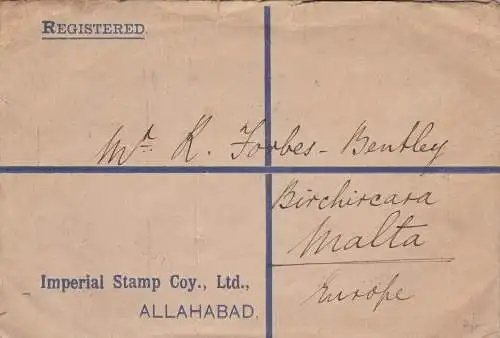 REGISTERED.
Mr. R. Forbes-Bentley
Birchircara
Malta
Europe
Imperial Stamp Coy., Ltd.,
ALLAHABAD.